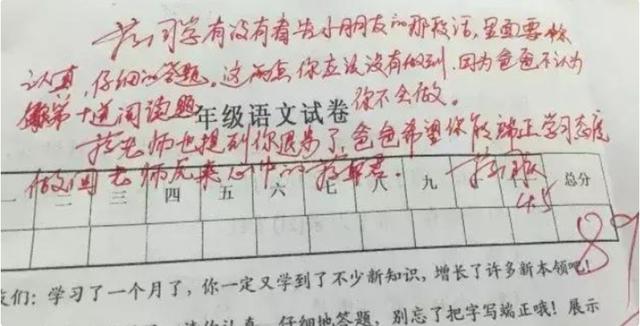 同学有没有看告小朋友的那段话,里面要你
认真,仔细的答题。这两点你应该没有做到,因为爸爸不认为
第十道阅读题你不会做。
年级语文试卷
老师也提到你退步了,爸爸希望你能端正学习态度
做回老师原来心中的
一 二 三 四 五 六 七 八 九 十 总分
4.5
89
友们:学习了一个月了,你一定又学到了不少新知识,增长了许多新本领吧!
仔细地答题,别忘了把字写端正哦!展示